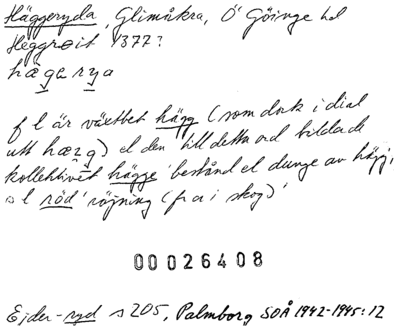 Häggeryda, Glimåkra, Ö Göinge hd
Heggroit 1377?
hægærya
f l är växtbet hägg (som dock i dial
utt hæzg) el den till detta ord bildade
kollektivet hägge 'bestånd el dunge av hägg,
s l röd 'röjning (fr a i skog)'
00026408
Ejder-ryd s 205, Palmborg SOÅ 1942-1945:12